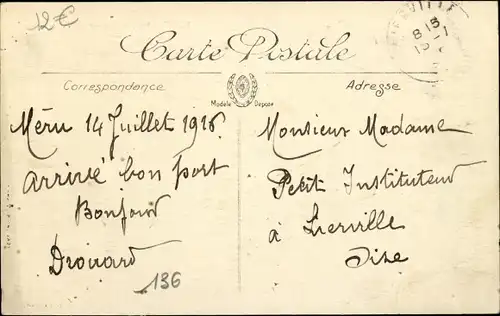 12€
Carte Postale
Correspondance
Adresse
Modèle Déposé
Méru 14 Juillet 1916
arrivé bon port
Bonjour
Drouard
136
Monsieur Madame
Petit Instituteur
à Lierville
Oise